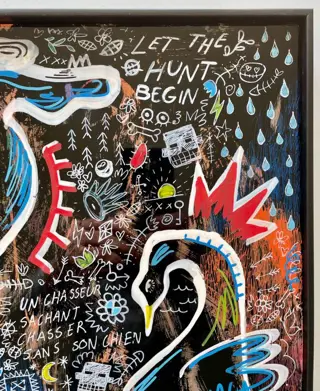 LET THE
HUNT
BEGIN
XXX
XXX
UN CHASSEUR
SACHANT
CHASSER
SANS SON CHIEN